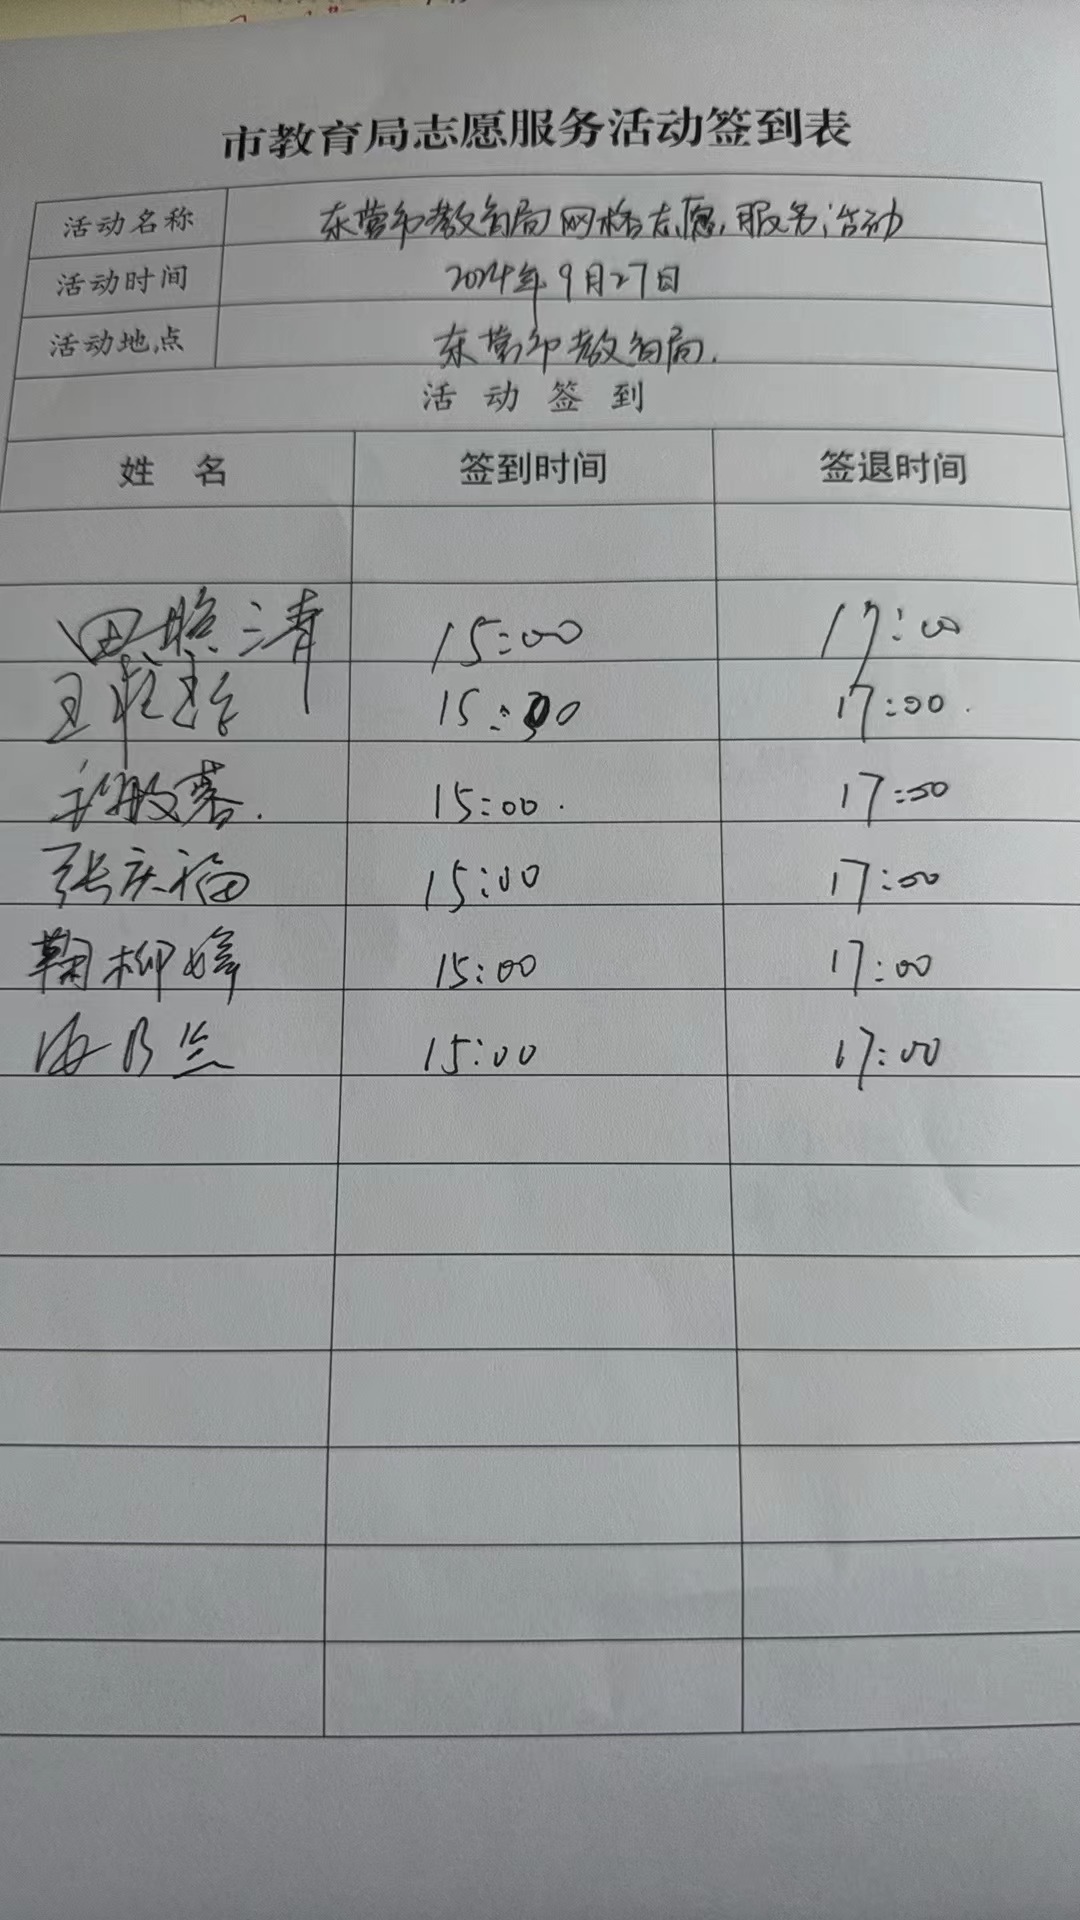 市教育局志愿服务活动签到表
活动名称 东营市教育局网格志愿服务活动
活动时间 2024年9月27日
活动地点 东营市教育局.
活动签到
姓名 签到时间 签退时间
田照清 15:00 17:00
15:00 17:00.
15:00. 17:00
张庆福 15:00 17:00
鞠柳婷 15:00 17:00
15:00 17:00